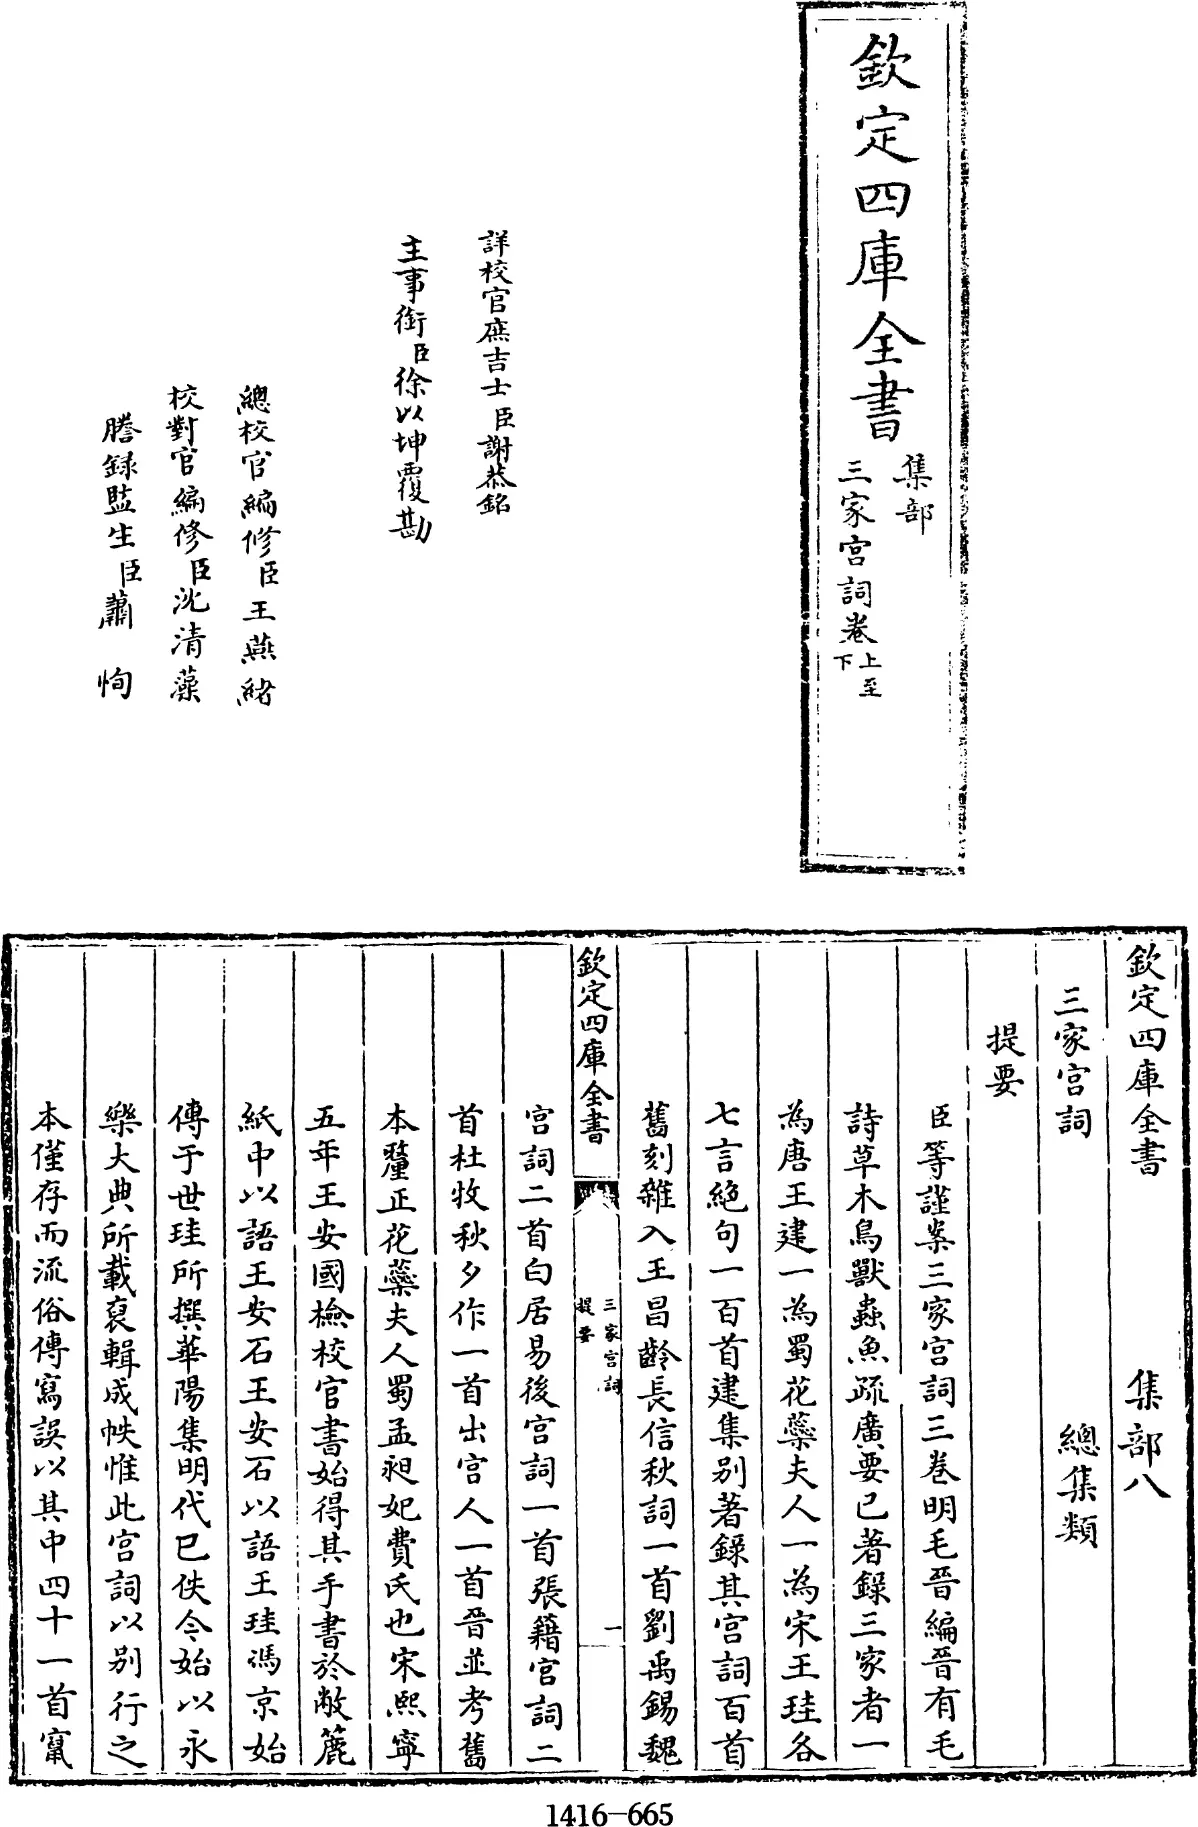 欽定四庫全書
集部
三家宮詞卷上至下
詳校官庶吉士臣謝恭銘
主事銜臣徐以坤覆勘
總校官編修臣王燕緒
校對官編修臣沈清藻
謄錄監生臣蕭 恂
欽定四庫全書 集部八
三家宮詞 總集類
提要
臣等謹案三家宮詞三卷明毛晉編晉有毛
詩草木鳥獸蟲魚疏廣要已著録三家者一
為唐王建一為蜀花蘂夫人一為宋王珪各
七言絕句一百首建集别著録其宮詞百首
舊刻雜入王昌齡長信秋詞一首劉禹錫魏
欽定四庫全書
三家宮詞
提要
一
宮詞二首白居易後宮詞一首張籍宮詞二
首杜牧秋夕作一首出宮人一首晉並考舊
本釐正花蘂夫人蜀孟昶妃費氏也宋熙寧
五年王安國檢校官書始得其手書於敝簏
紙中以語王安石王安石以語王珪馮京始
傳于世珪所撰華陽集明代已佚今始以永
樂大典所載裒輯成帙惟此宮詞以别行之
本僅存而流俗傳寫誤以其中四十一首竄
1416-665